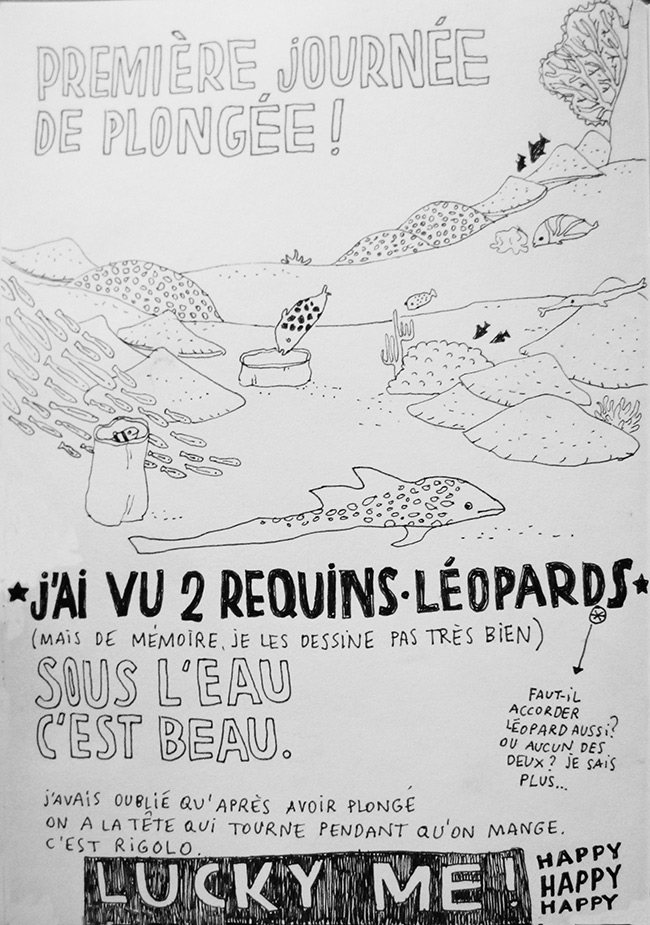 PREMIÈRE JOURNÉE
DE PLONGÉE !
★ J'AI VU 2 REQUINS-LÉOPARDS ★
(MAIS DE MÉMOIRE, JE LES DESSINE PAS TRÈS BIEN)
SOUS L'EAU
C'EST BEAU.
FAUT-IL
ACCORDER
LÉOPARD AUSSI?
OU AUCUN DES
DEUX? JE SAIS
PLUS...
J'AVAIS OUBLIÉ QU'APRÈS AVOIR PLONGÉ
ON A LA TÊTE QUI TOURNE PENDANT QU'ON MANGE.
C'EST RIGOLO.
LUCKY ME!
HAPPY
HAPPY
HAPPY